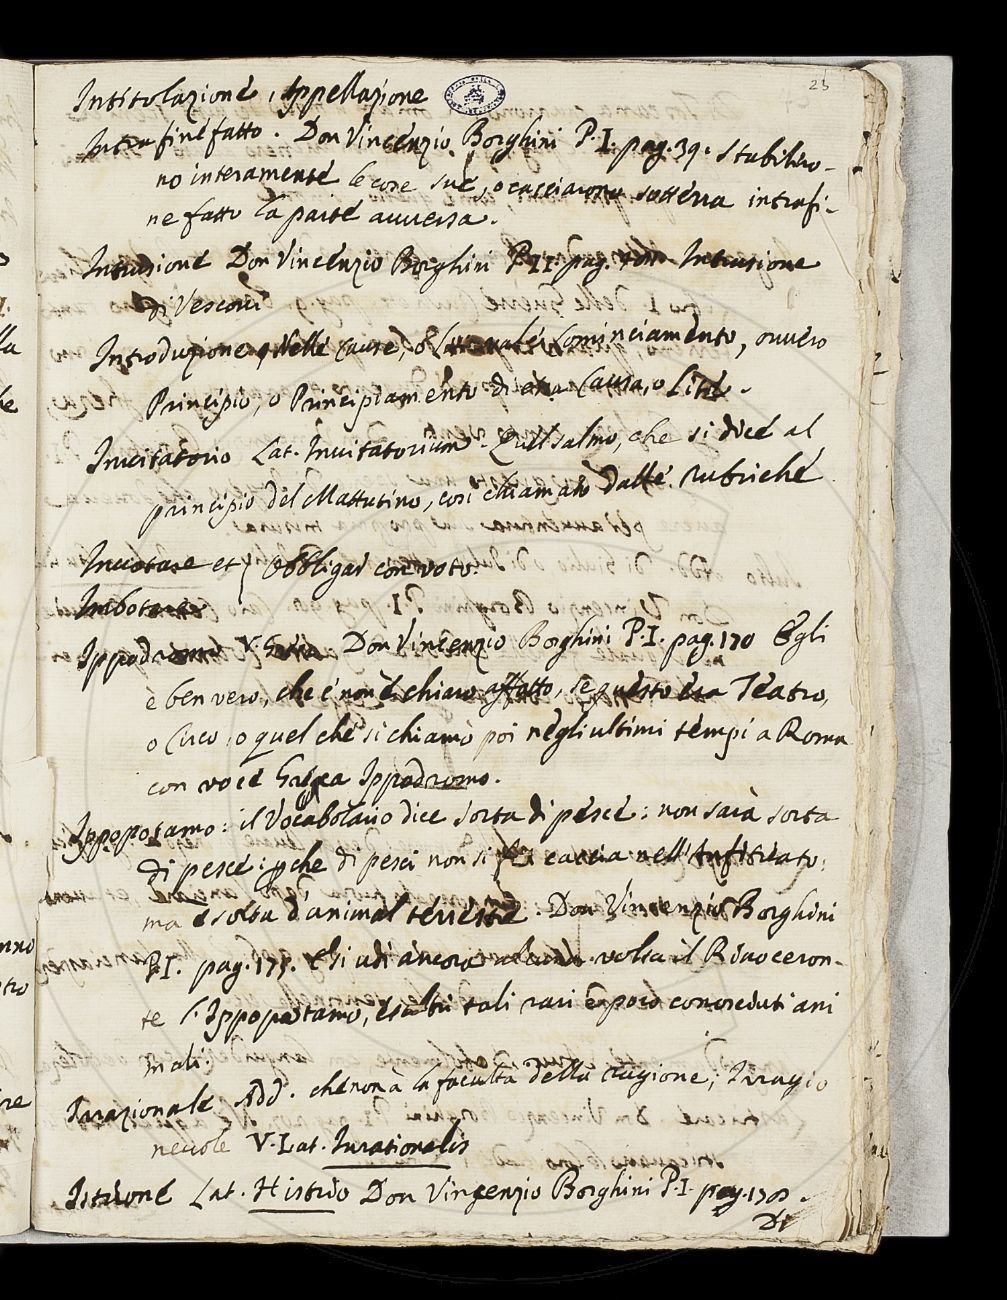 23
Intitolazione, Appellazione
Intrafinefatto. Don Vincenzio Borghini P.I. pag. 39. stabiliro-
no interamente le cose sue, o cacciarono sotterra intrafi-
ne fatto la parte avversa.
Intrusione Don Vincenzio Borghini P.II. pag. Intrusione
di Vescovi
Introduzione, Nelle Cause, Cominciamento, ovvero
Principio, o Principiamento di Causa, o Lite.
Invitatorio Lat. Invitatorium. Quel salmo, che si dice al
principio del Mattutino, così chiamato dalle rubriche
Invotare et } Obbligar con voto.
Imbotare
Ippodromo V. Greca Don Vincenzio Borghini P.I. pag. 170 Egli
è ben vero, che e' non è chiaro affatto, se questo era Teatro,
o Circo, o quel che si chiamò poi negli ultimi tempi a Roma
con voce Greca Ippodromo.
Ippopotamo: il Vocabolario dice sorta di pesce: non sarà sorta
di pesce: pche di pesci non si fa caccia nell'Anfiteatro:
ma sorta d'animal terreste. Don Vincenzio Borghini
P.I. pag. 175. E vi udi ancora alcuna volta il Rinoceron-
te l'Ippopotamo, e altri tali rari e poco conosciuti ani
mali.
Irrazionale Add. che non à la facultà della ragione; Irragio
nevole V. Lat. Irrationalis
Istrione Lat. Histrio Don Vincenzio Borghini P.I. pag.
Di